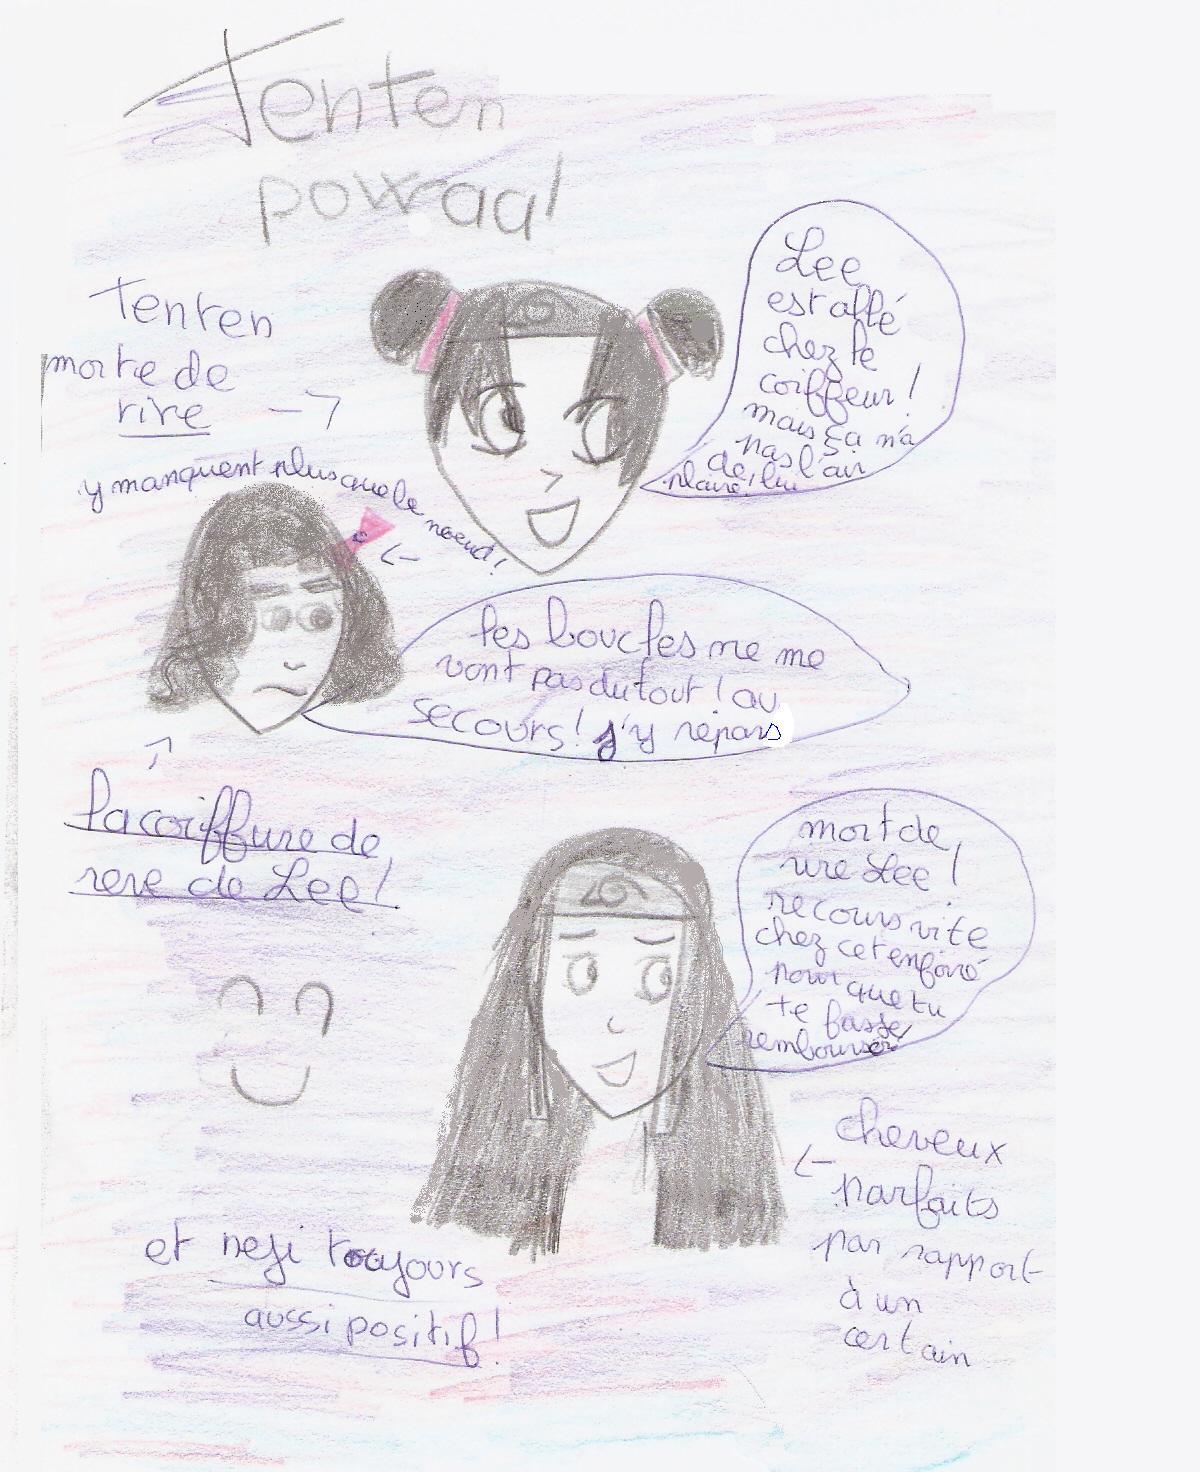 Tenten
powaa!
Tenten
morte de
rire
Lee
est allé
chez le
coiffeur!
mais ça n'a
pas l'air
de lui
plaire!
y manquent plus que le noeud!
les boucles ne me
vont pas du tout! au
secours! j'y repars
la coiffure de
reve de Lee!
mort de
rire Lee!
recours vite
chez cet enfoiré
pour que tu
te fasse
rembourser!
cheveux
parfaits
par rapport
à un
certain
et neji toujours
aussi positif!